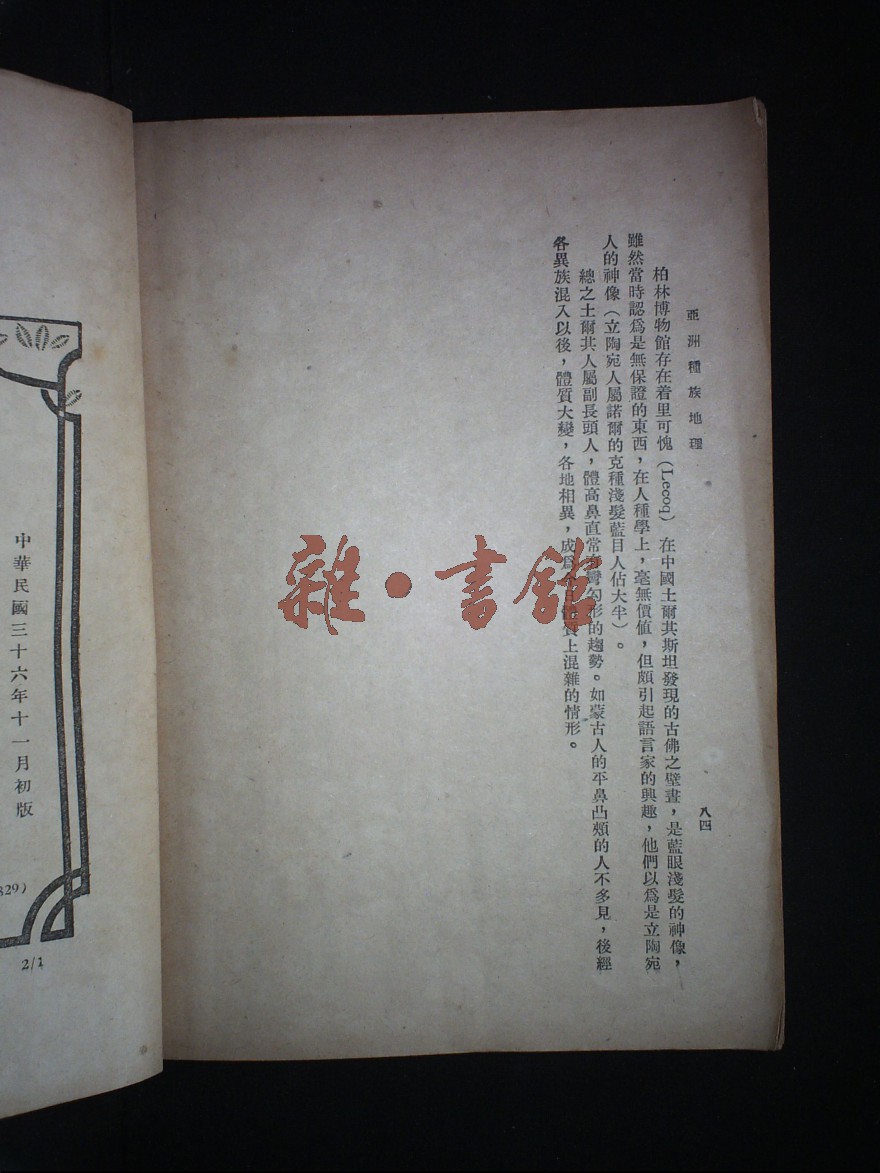 亞洲種族地理
八四
柏林博物館存在着里可愧(Lecoq)在中國土爾其斯坦發現的古佛之壁畫,是藍眼淺髮的神像,
雖然當時認爲是無保證的東西,在人種學上,毫無價値,但頗引起語言家的興趣,他們以爲是立陶宛
人的神像(立陶宛人屬諾爾的克種淺髮藍目人佔大半)。
總之土爾其人屬副長頭人,體高鼻直常有彎勾形的趨勢。如蒙古人的平鼻凸頰的人不多見,後經
各異族混入以後,體質大變,各地相異,成爲體質上混雜的情形。
雜·書館
中華民國三十六年十一月初版
829)
2/1